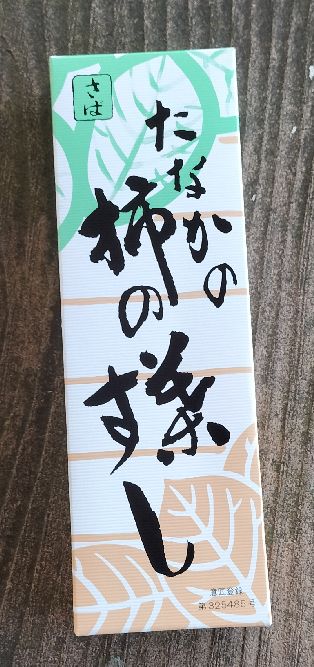 さば
たなかの
柿の葉すし
意匠登録
第325485号